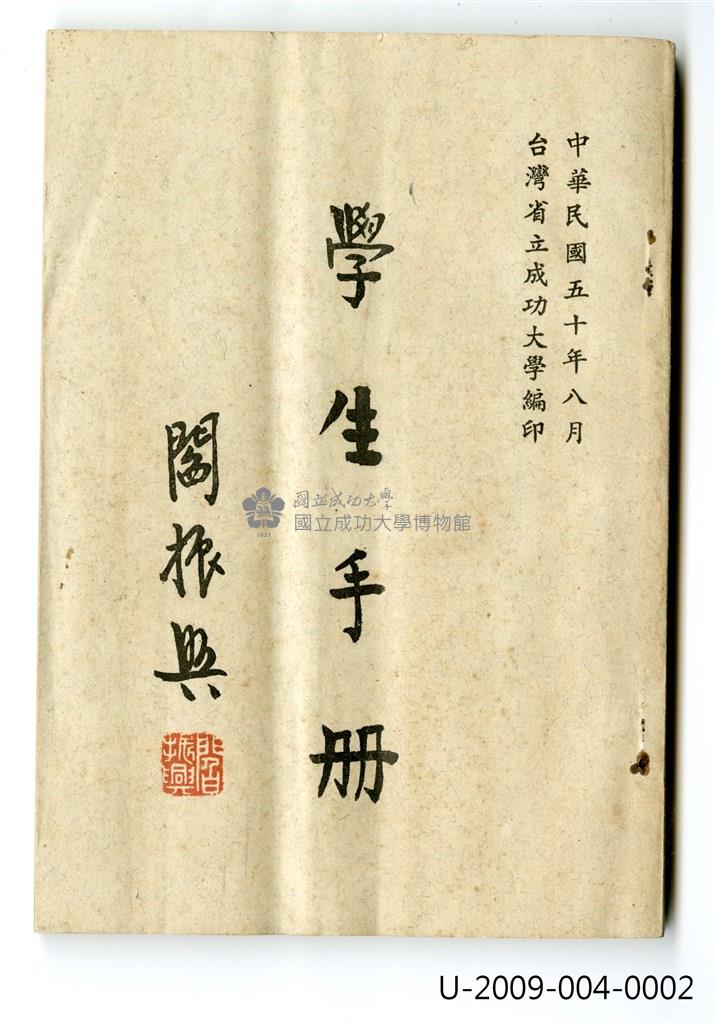 中華民國五十年八月
台灣省立成功大學編印
學生手册
閻振興
閻振興
國立成功大學
國立成功大學博物館
1931
U-2009-004-0002